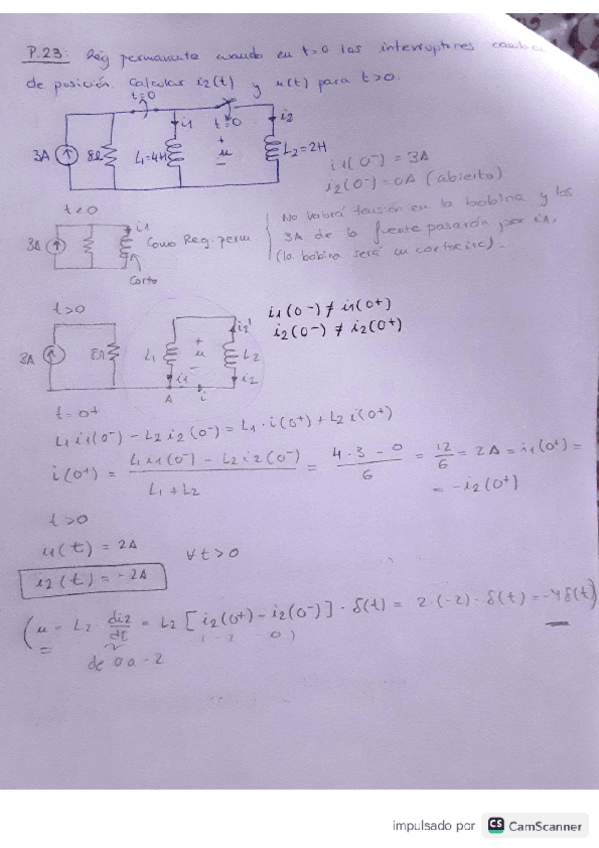 P.23: Reg permanente cuando en t=0 los interruptores cambian
de posición. Calcular i2(t) y u(t) para t>0.
t=0
3A 8Ω L1=4H i1 t=0 + u - i2 L2=2H
i1(0-) = 3A
i2(0-) = 0A (abierto)
t<0
3A i1 Como Reg. perm
Corto
No habrá tensión en la bobina y los
3A de la fuente pasarán por i1,
(la bobina será un cortocirc).
t>0
3A 8Ω L1 + u - i2' L2
i1 A i i2
i1(0-) ≠ i1(0+)
i2(0-) ≠ i2(0+)
t=0+
L1 i1(0-) - L2 i2(0-) = L1 · i(0+) + L2 i(0+)
i(0+) = L1 i1(0-) - L2 i2(0-) / L1 + L2 = 4·3 - 0 / 6 = 12/6 = 2A = i1(0+) =
= -i2(0+)
t>0
u(t) = 2A ∀t>0
i2(t) = -2A
(u = L2 · di2/dt = L2 [i2(0+) - i2(0-)] · δ(t) = 2·(-2)·δ(t) = -4δ(t)
-2 0
de 0 a -2
impulsado por CS CamScanner